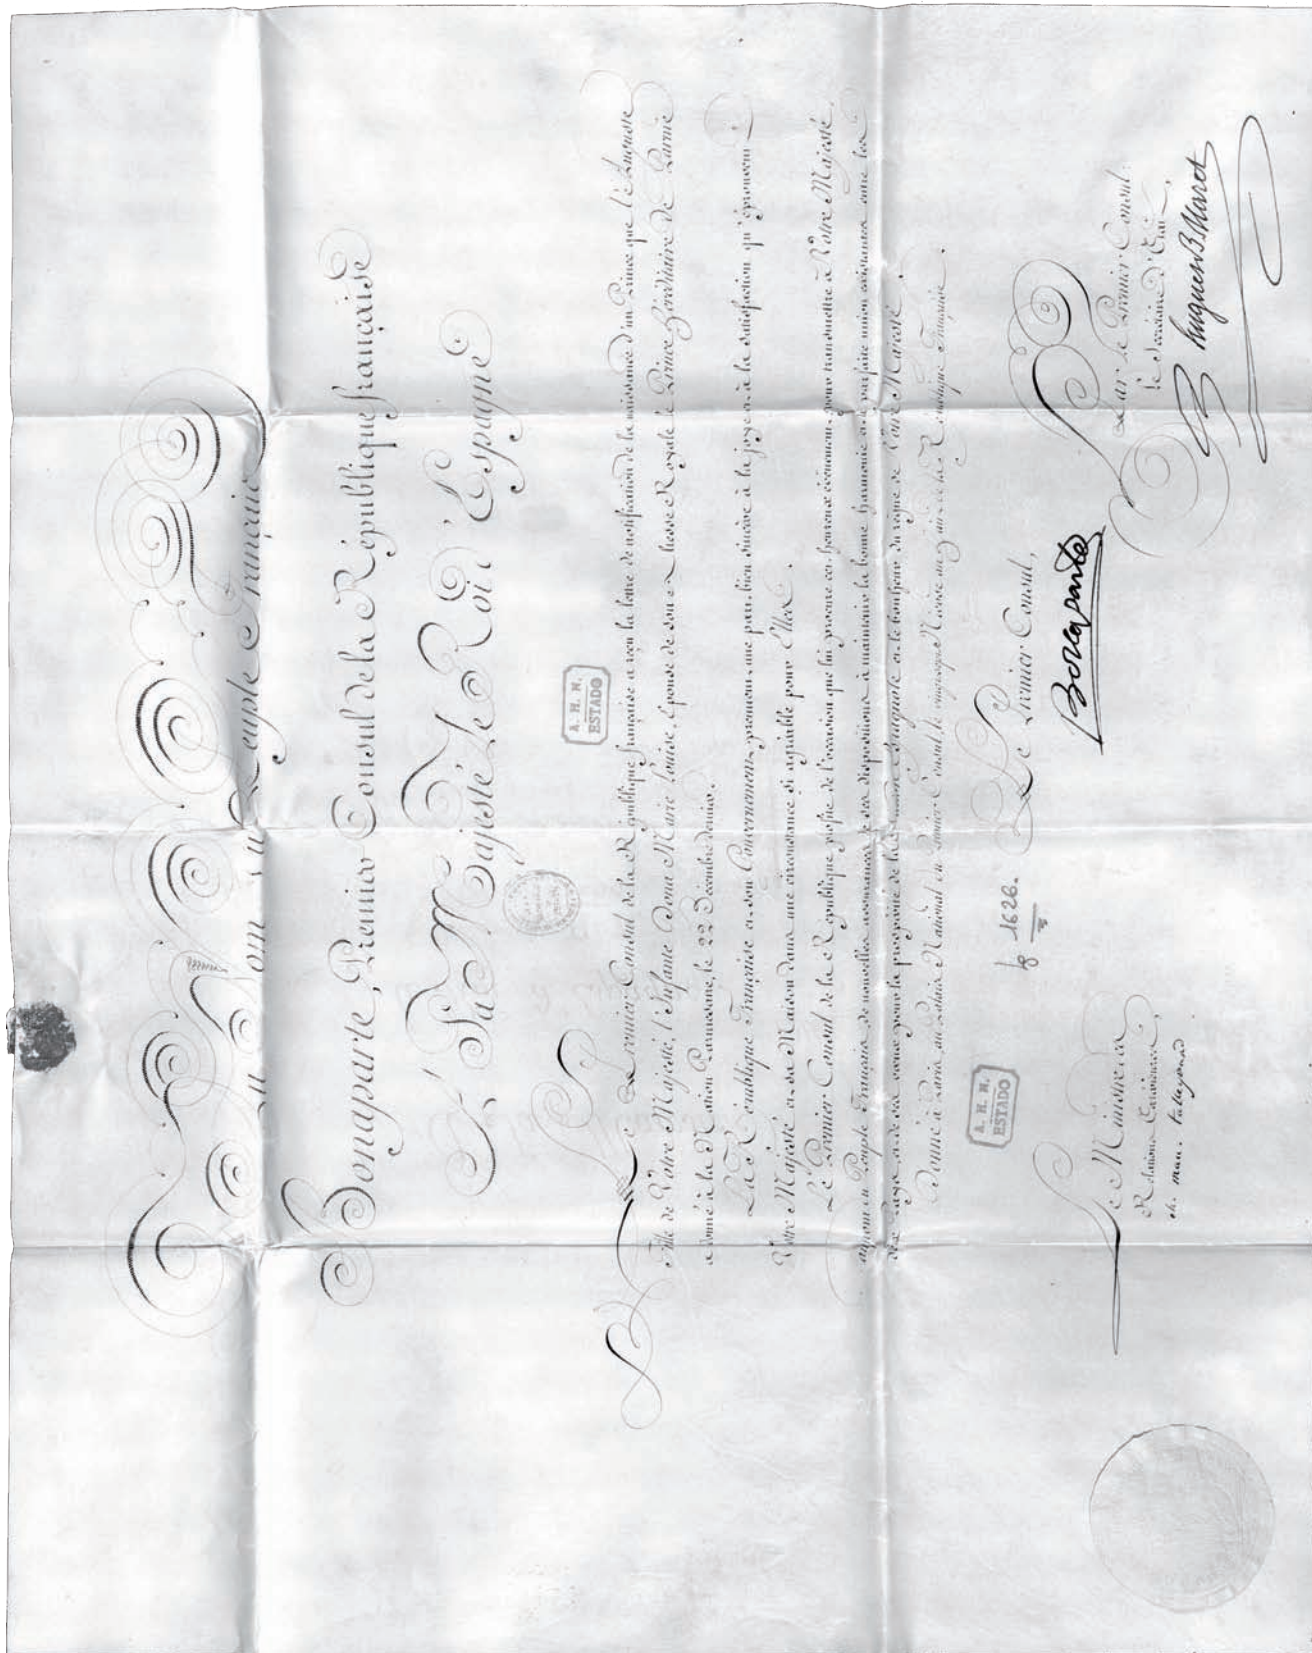 Au Nom du Peuple Français
Bonaparte, Premier Consul de la République française
A Sa Majesté Le Roi d'Espagne
A. H. N.
ESTADO
Le Premier Consul de la République française a reçu la lettre de notification de la naissance d'un Prince que l'Auguste
fille de Votre Majesté, l'Infante Dona Marie Louise, Epouse de son Altesse Royale le Prince héréditaire de Parme
a donné à la Nation Parmesane, le 22 Décembre dernier.
La République Française et son Gouvernement prennent une part bien sincère à la joye et à la satisfaction qu'éprouvent
Votre Majesté et sa Maison dans une circonstance si agréable pour Elles.
Le Premier Consul de la République profite de l'occasion que lui procure cet heureux événement pour transmettre à Votre Majesté
au nom du Peuple Français de nouvelles assurances de ses dispositions à maintenir la bonne harmonie et la parfaite union existantes entre les
deux Pays et de ses vœux pour la prospérité de la Nation Espagnole et le bonheur du règne de Votre Majesté.
Donné à Paris, au Palais National du Premier Consul, le vingt-sept Nivose an de la République Française.
Le Premier Consul,
Bonaparte
lg 1626.
A. H. N.
ESTADO
Le Ministre des
Relations Extérieures,
ch. mau. talleyrand
Par le Premier Consul:
le Secrétaire d'Etat,
Hugues B. Maret